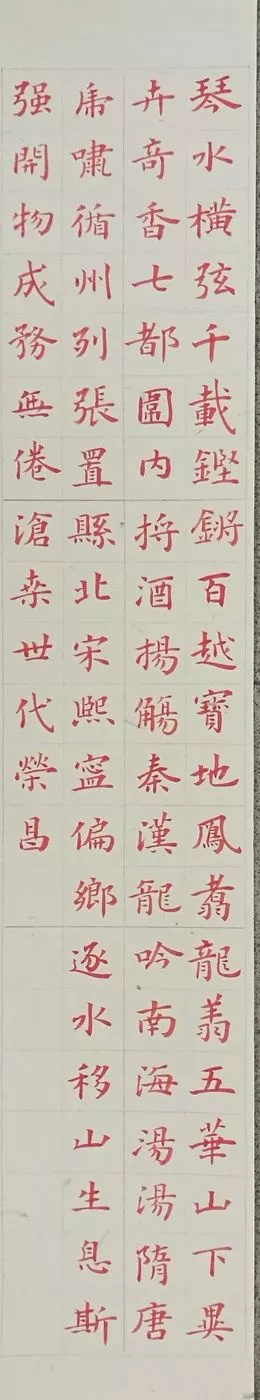 琴水橫弦千載鏗鏘百越寳地鳳翥龍翥五華山下異
卉竒香七都圖内捋酒揚觴秦漢龍吟南海湯湯隋唐
虎嘯循州列張置縣北宋熙寍偏鄉逐水移山生息斯
强開物成務無倦滄桒世代榮昌